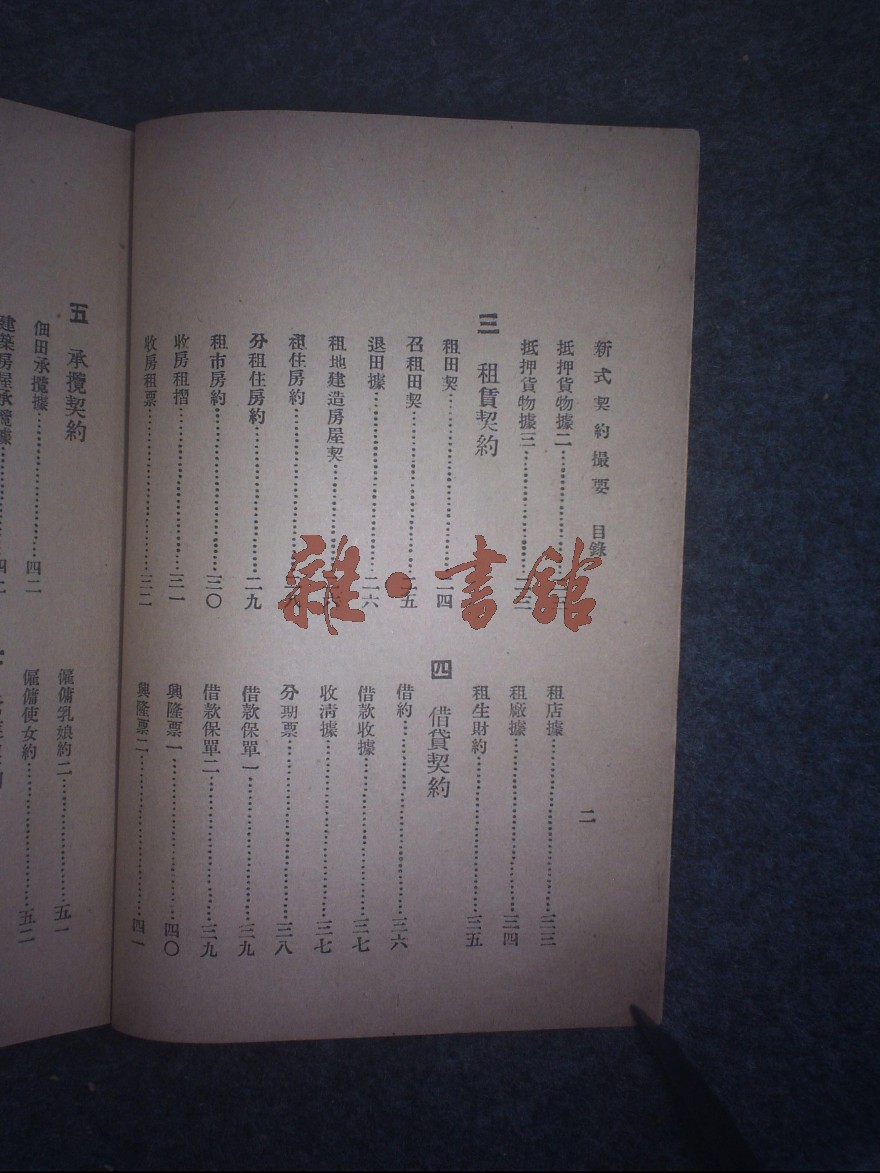 新式契約撮要 目錄
二
抵押貨物據二
抵押貨物據三
三 租賃契約
租田契
召租田契
退田據 二六
租地建造房屋契
租住房約
分租住房約 二九
租市房約 三〇
收房租摺 三一
收房租票 三二
租店據 三三
租廠據 三四
租生財約 三五
四 借貸契約
借約 三六
借款收據 三七
收清據 三七
分期票 三八
借款保單一 三九
借款保單二 三九
興隆票一 四〇
興隆票二 四一
五 承攬契約
佃田承攬據 四二
建築房屋承攬據
僱傭乳娘約二 五一
僱傭使女約 五二
雜·書館